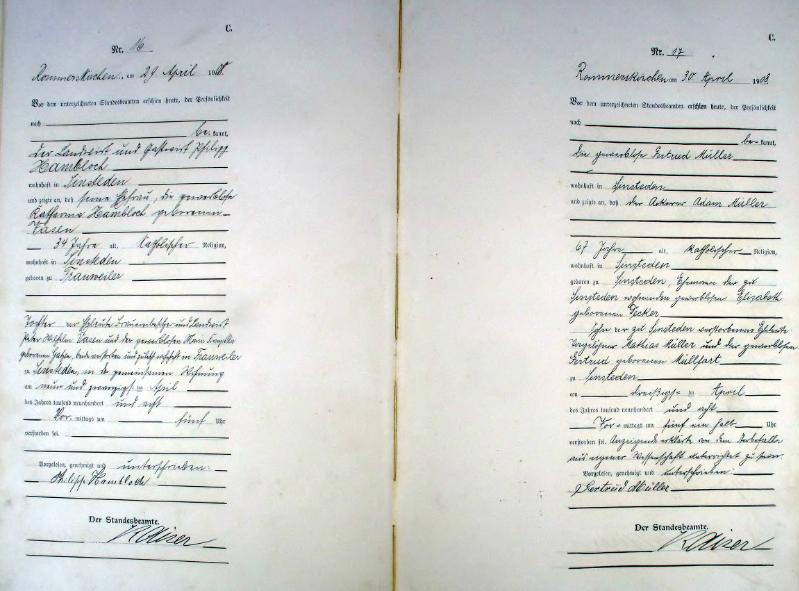 C.
Nr. 16
Rommerskirchen am 29 April 1908.
Vor dem unterzeichneten Standesbeamten erschien heute, der Persönlichkeit
nach
be kannt,
der Landwirt und Gastwirt Philipp
Hambloch
wohnhaft in Sinsteden
und zeigte an, daß seine Ehefrau, die gewerblose
Katharina Hambloch geborenen
Vasen
34 Jahre alt, katholischer Religion,
wohnhaft in Sinsteden
geboren zu Frauweiler
Tochter der Eheleute und Landwirt
Peter Vasen und der gewerblosen
geborenen in Frauweiler
zu Sinsteden, in der gemeinsamen Wohnung
am neun und zwanzigsten April
des Jahres tausend neunhundert und acht
Vor mittags um fünf Uhr
verstorben sei.
Vorgelesen, genehmigt und unterschrieben.
Philipp Hambloch
Der Standesbeamte.
Kaiser
C.
Nr. 17
Rommerskirchen am 30 April 1908
Vor dem unterzeichneten Standesbeamten erschien heute, der Persönlichkeit
nach
be kannt,
die gewerblose Gertrud Müller
wohnhaft in Sinsteden
und zeigte an, daß der Ackerer Adam Müller
67 Jahre alt, katholischer Religion,
wohnhaft in Sinsteden
geboren zu Sinsteden, Ehemann der zu
Sinsteden wohnenden gewerblosen Elisabeth
geborenen Decker
Sohn der zu Sinsteden verstorbenen Eheleute
Mathias Müller und der gewerblosen
Gertrud geborenen Müllfart
zu Sinsteden
am dreißigsten April
des Jahres tausend neunhundert und acht
Vor mittags um fünf ein halb Uhr
verstorben sei. Anzeigende erklärte von dem Sterbefalle
aus eigener Wissenschaft unterrichtet zu sein.
Vorgelesen, genehmigt und unterschrieben.
Gertrud Müller
Der Standesbeamte.
Kaiser